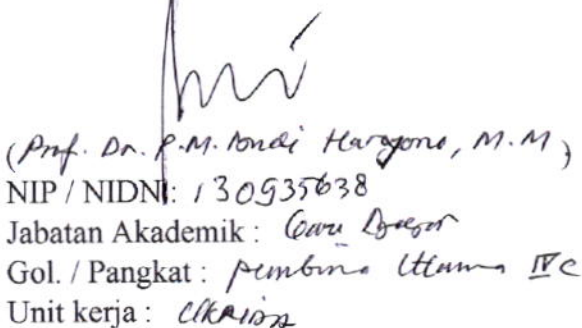 (Prof. Dr. P.M. Bondi Haryono, M.M)
NIP / NIDN : 130935638
Jabatan Akademik : Guru Besar
Gol. / Pangkat : Pembina Utama IVc
Unit kerja : UKRIDA